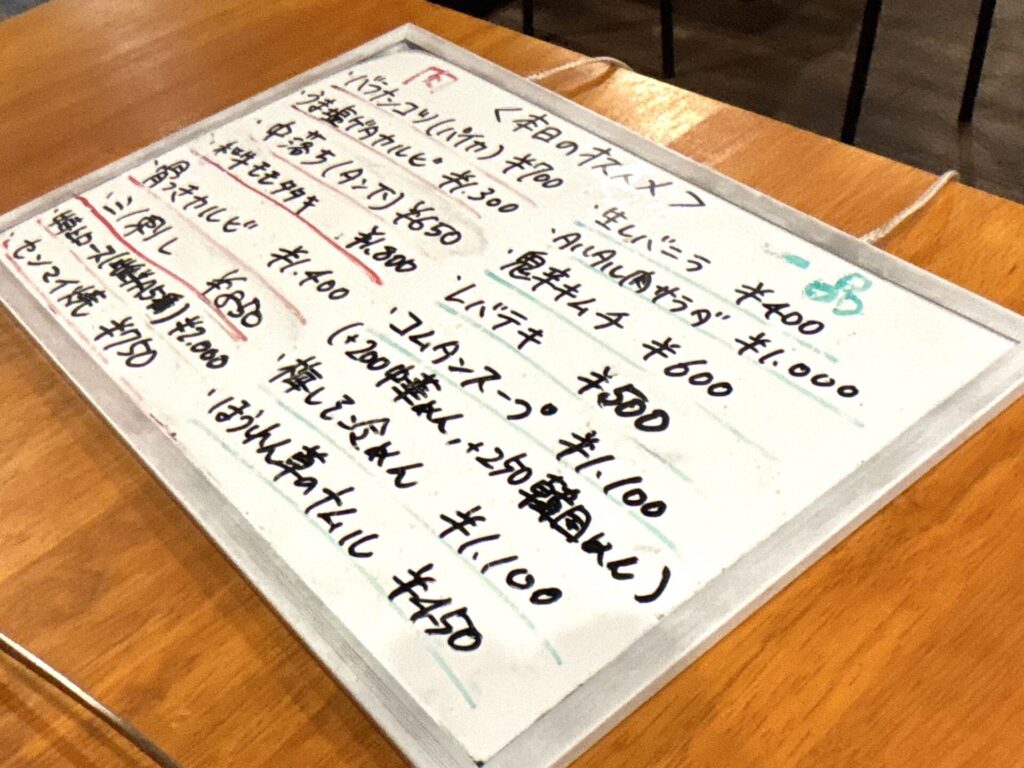 ＜本日のオススメ＞
肉
・バラナンコツ(パイカ) ¥700
・うま塩ゲタカルビ ¥1.300
・中落ち(タン下) ¥650
・和牛モモタタキ ¥1.800
・骨つきカルビ ¥1.400
・ミノ刺し ¥850
¥2.000
・センマイ焼 ¥750
一品
・生レバニラ ¥400
・APAPA肉サラダ ¥1.000
・鬼辛キムチ ¥600
・レバテキ ¥500
・コムタンスープ ¥1.100
(+200中華めん,+250韓国めん)
・梅しそ冷めん ¥1.100
・ほうれん草のナムル ¥450